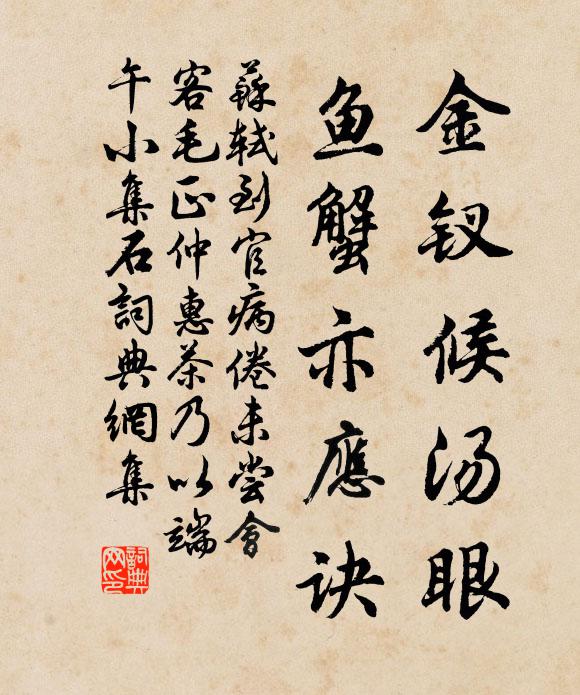 金钗候汤眼
鱼蟹亦應诀
蘇轼到官病倦未尝會
客毛正仲惠茶乃以端
午小集石詞典網集
詞典网印